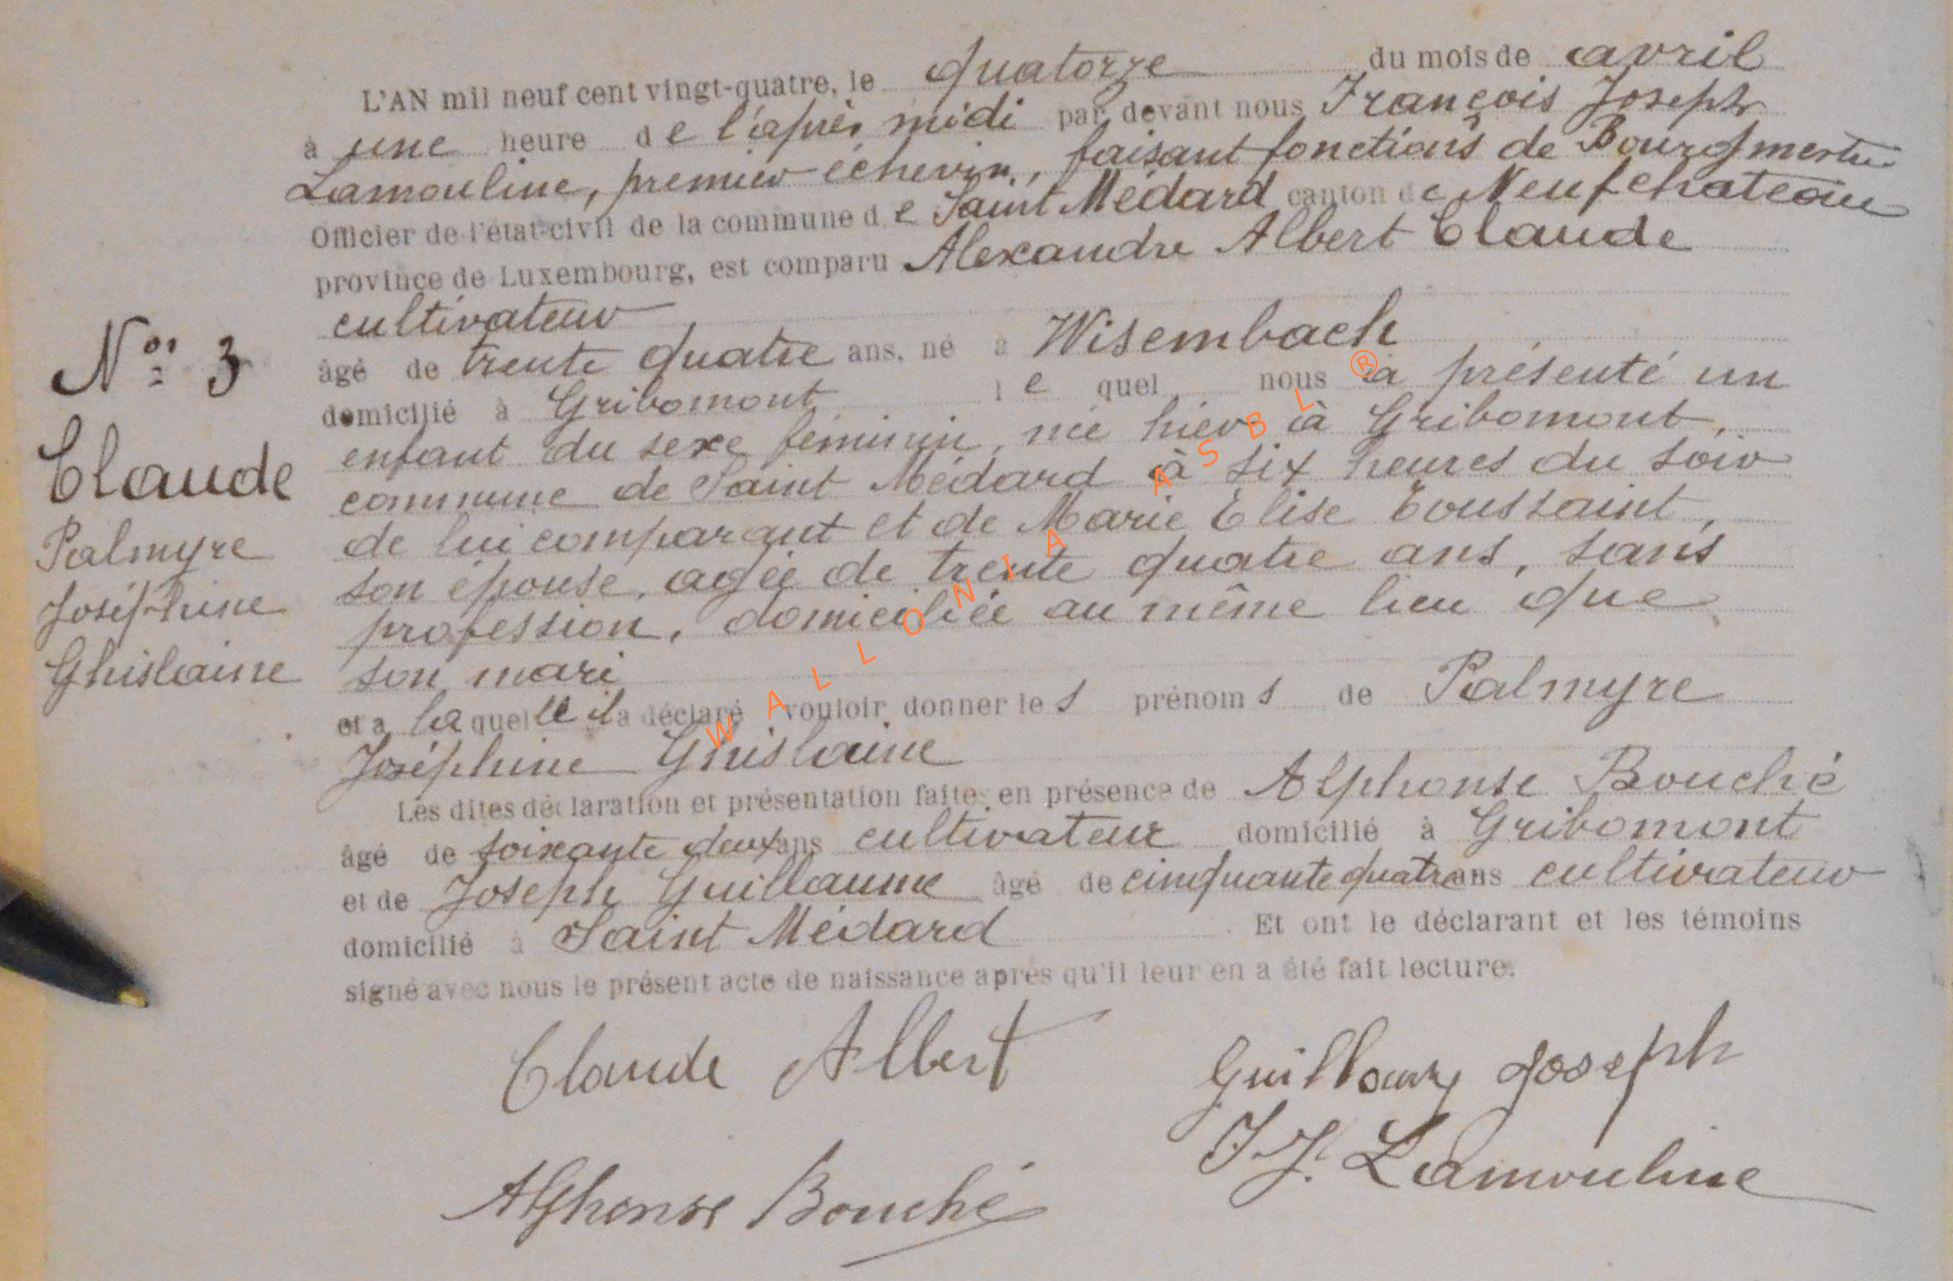 L'AN mil neuf cent vingt-quatre, le quatorze du mois de avril
à une heure de l'après midi par devant nous François Joseph
Lamouline, premier échevin, faisant fonctions de Bourgmestre
Officier de l'état-civil de la commune de Saint Médard canton de Neufchateau
province de Luxembourg, est comparu Alexandre Albert Claude
cultivateur
âgé de trente quatre ans, né à Wisembach
domicilié à Gribomont lequel nous a présenté un
enfant du sexe féminin, née hier à Gribomont,
commune de Saint Médard à six heures du soir
de lui comparant et de Marie Elise Toussaint,
son épouse, agée de trente quatre ans, sans
profession, domiciliée au même lieu que
son mari
et à laquelle il a déclaré vouloir donner les prénoms de Palmyre
Joséphine Ghislaine
Les dites déclaration et présentation faites en présence de Alphonse Bouché
âgé de soixante deux ans cultivateur domicilié à Gribomont
et de Joseph Guillaume âgé de cinquante quatre ans cultivateur
domicilié à Saint Médard Et ont le déclarant et les témoins
signé avec nous le présent acte de naissance après qu'il leur en a été fait lecture.
No: 3
Claude
Palmyre
Joséphine
Ghislaine
Claude Albert
Guillaume Joseph
F J. Lamouline
Alphonse Bouché
WALLONIA ASBL ®